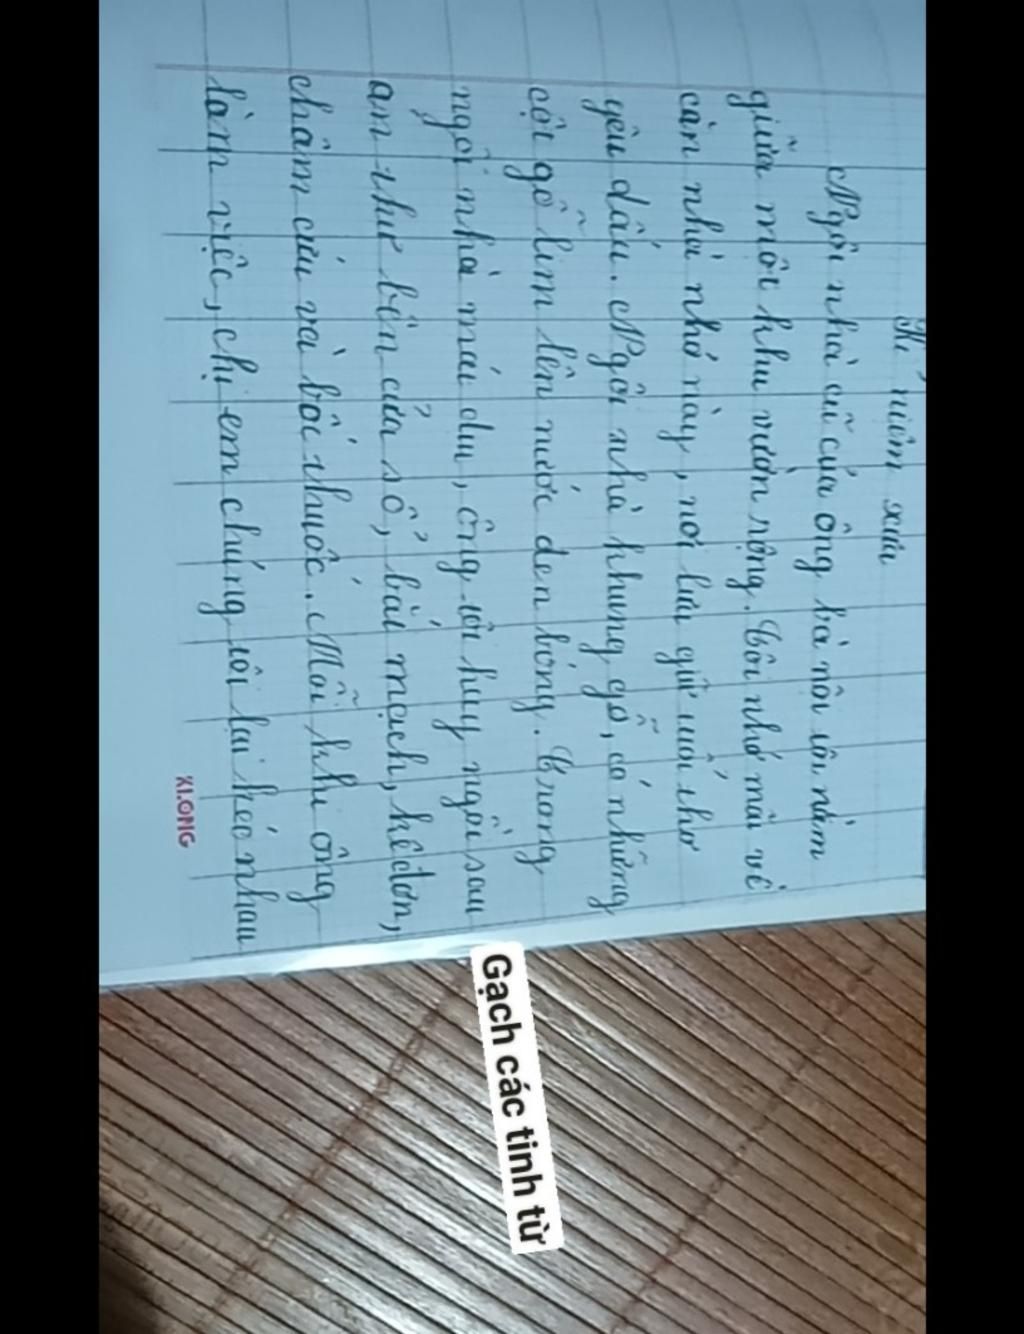 Kỉ niệm xưa
Ngôi nhà cũ của ông bà nội tôi nằm
giữa một khu vườn rộng. Tôi nhớ mãi về
căn nhà nhỏ này, nơi lưu giữ tuổi thơ
yêu dấu. Ngôi nhà khung gỗ, có những
cột gỗ lim lên nước đen bóng. Trong
ngôi nhà mái dịu, ông tôi hay ngồi sau
án thư bên cửa sổ, bắt mạch, kê đơn,
châm cứu và bốc thuốc. Mỗi khi ông
làm việc, chị em chúng tôi lại kéo nhau
KLONG
Gạch các tinh từ